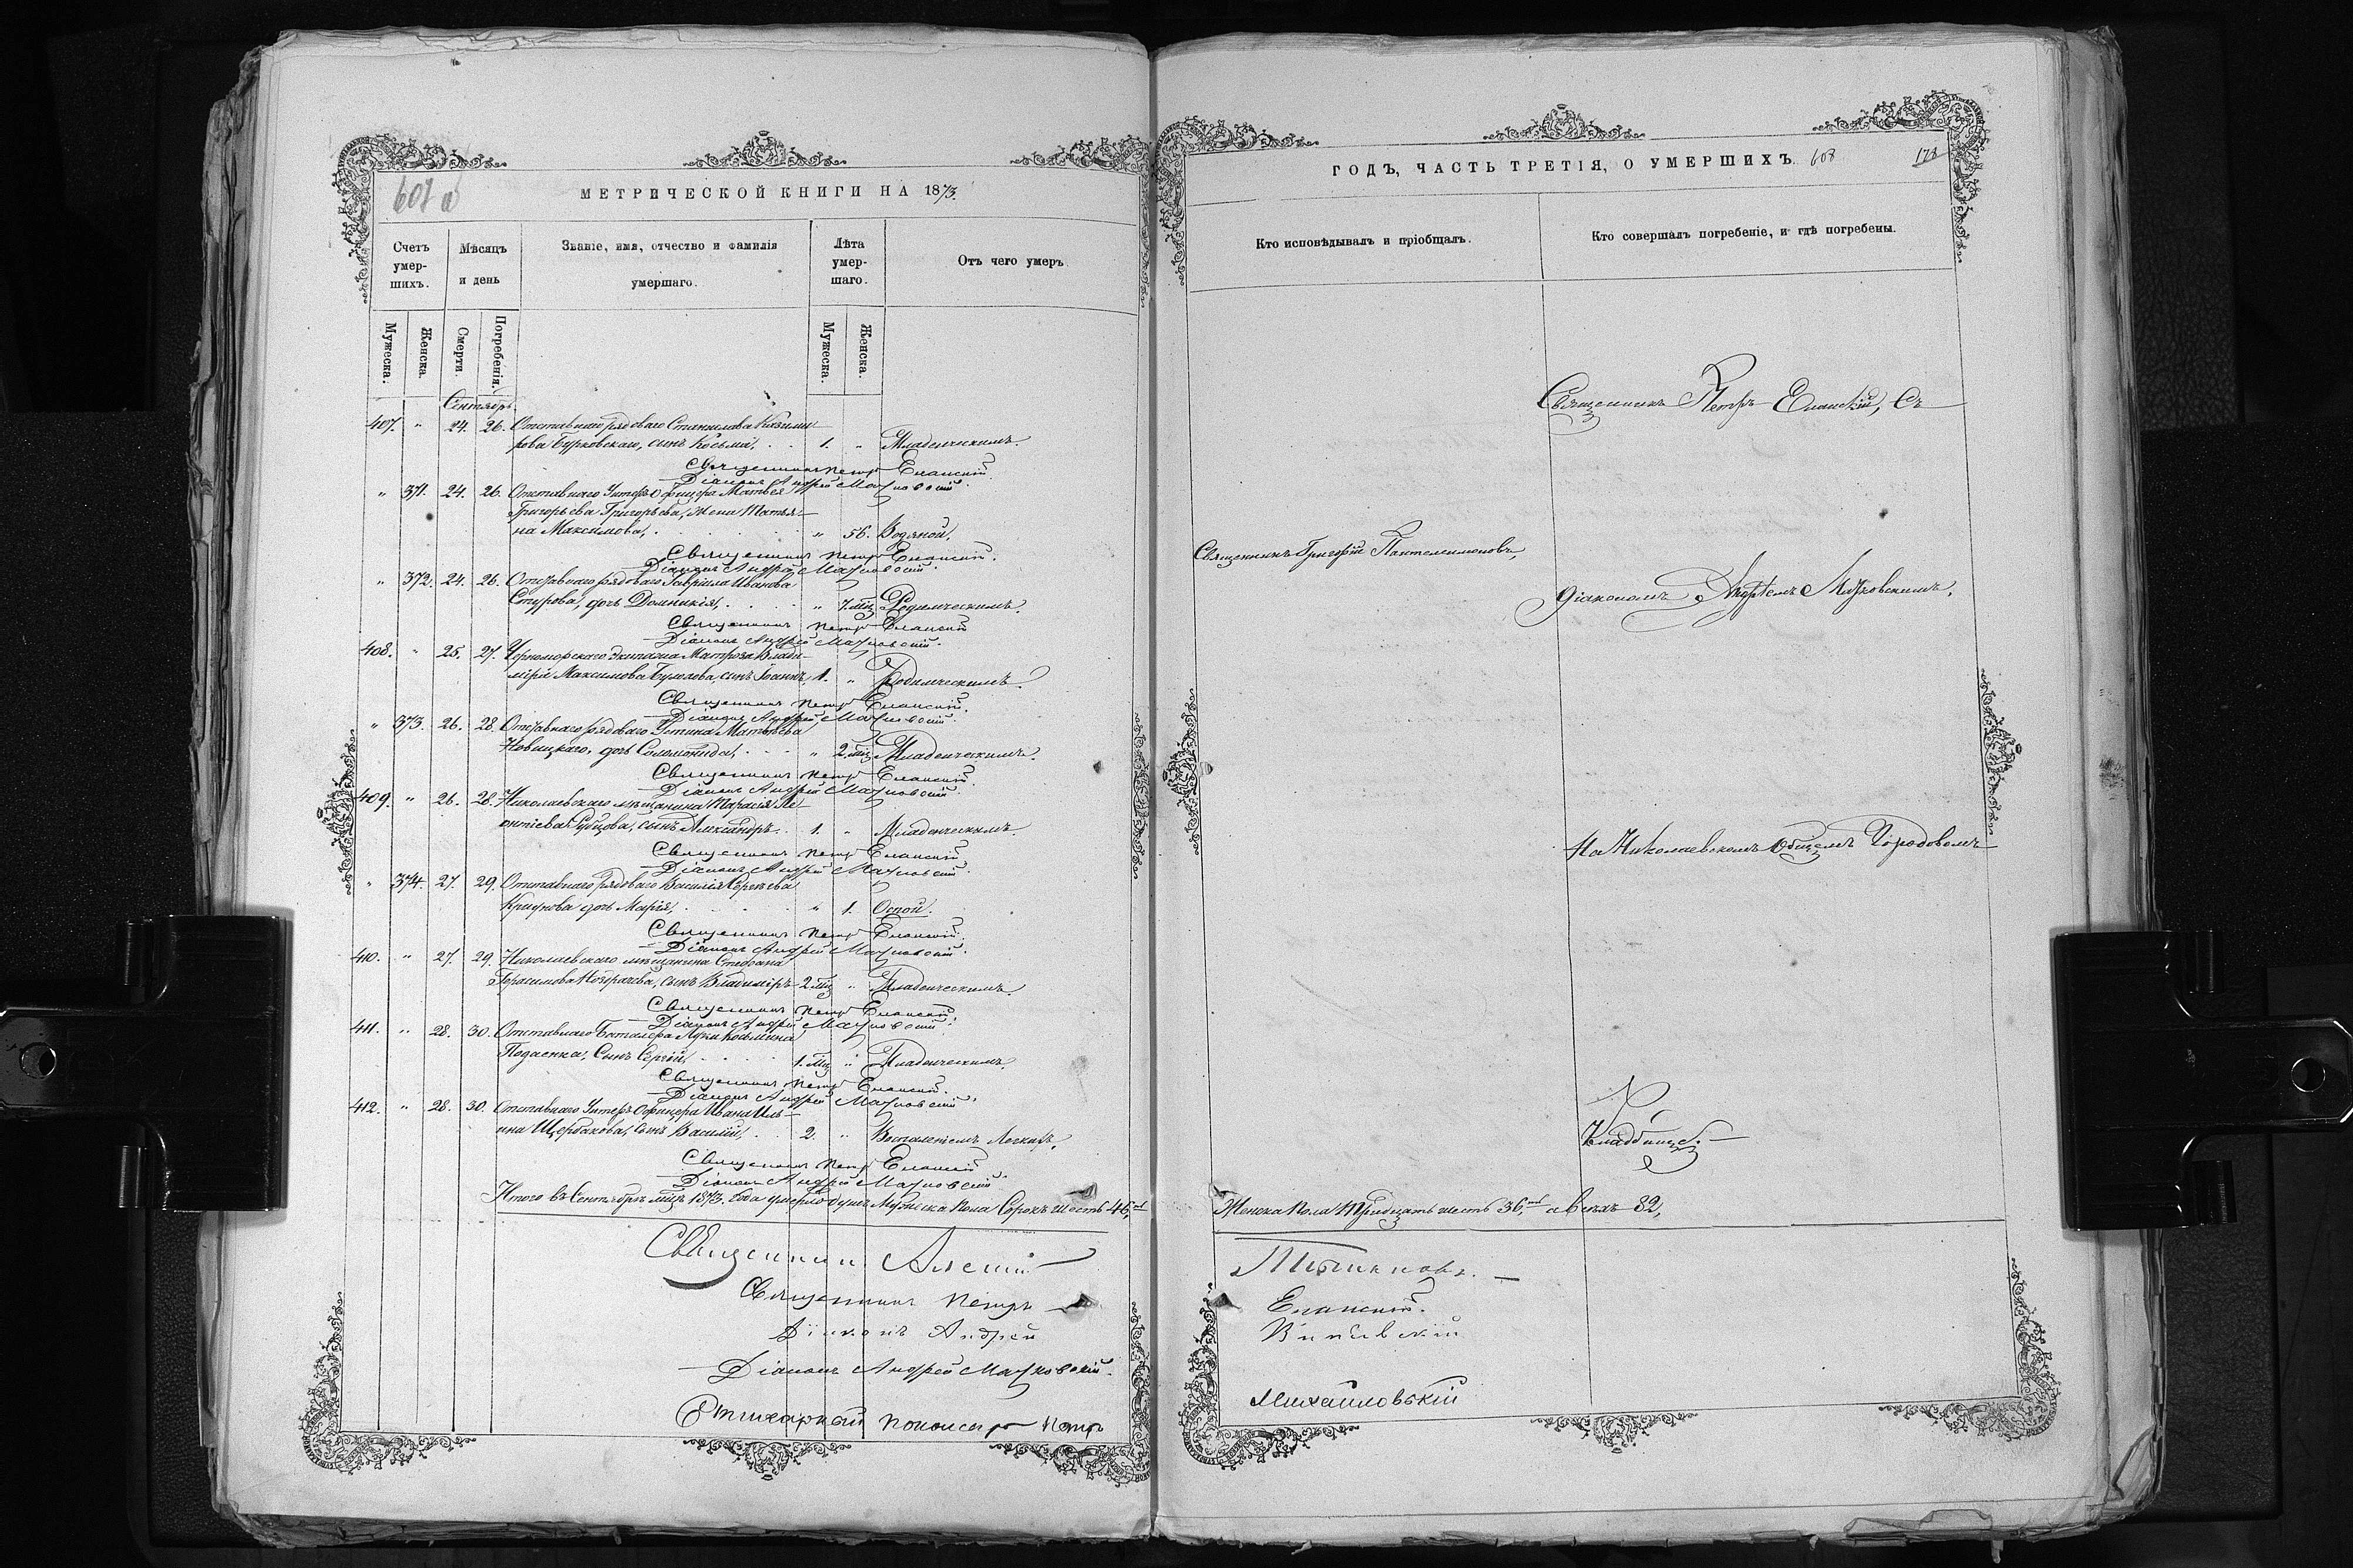 607 а
МЕТРИЧЕСКОЙ КНИГИ НА 1873.
Счетъ умер-шихъ.
Мѣсяцъ и день
Званіе, имя, отчество и фамилія умершаго.
Лѣта умер-шаго.
Отъ чего умеръ
Мужеска.
Женска.
Смерти.
Погребенія.
Мужеска.
Женска.
Сентябрь.
407. " 24. 26. Отставнаго рядоваго Станислава Казими-
рова Бурковскаго, сынъ Косьма, 1. " Младенческимъ.
Священникъ Петръ Еланскій
Діаконъ Андрей
" 371. 24. 26. Отставнаго Унтеръ Офицера Матвея
Григорьева Григорьева, жена Татья-
на Максимова, " 56. Водяной.
Священникъ Петръ Еланскій.
Діаконъ Андрей
" 372. 24. 26. Отставнаго рядоваго Гавриила Иванова
дочь Домникія, " 7. мѣц. Родимческимъ.
Священникъ Петръ Еланскій
Діаконъ Андрей
408. " 25. 27. Черноморскаго Экипажа Матроза Влади-
міра Максимова сынъ Іоаннъ, 1. " Родимческимъ.
Священникъ Петръ Еланскій.
Діаконъ Андрей
" 373. 26. 28. Отставнаго рядоваго Устина Матвѣева
Новицкаго, дочь Соломонида, " 2. мѣц. Младенческимъ.
Священникъ Петръ Еланскій
Діаконъ Андрей
409. " 26. 28. Николаевскаго мѣщанина Тарасія Ле-
онтіева сынъ Александръ. 1. " Младенческимъ.
Священникъ Петръ Еланскій
Діаконъ Андрей
" 374. 27. 29. Отставнаго рядоваго Василія
дочь Марія, " 1. Оспой.
Священникъ Петръ Еланскій.
Діаконъ Андрей
410. " 27. 29. Николаевскаго мѣщанина Стефана
Герасимова Ноздрачева, сынъ Владиміръ 2 мѣц " Младенческимъ.
Священникъ Петръ Еланскій
Діаконъ Андрей
411. " 28. 30. Отставнаго Баталера Луки Косьмина
сынъ Сергій, 1. мѣц " Младенческимъ.
Священникъ Петръ Еланскій.
Діаконъ Андрей
412. " 28. 30. Отставнаго Унтеръ Офицера Ивана Иль-
ина Щербакова, сынъ Василій, 2. " Воспаленіемъ Легкихъ.
Священникъ Петръ Еланскій
Діаконъ Андрей
Итого въ Сентябрѣ мѣцѣ 1873. года умерло душъ Мужеска пола Сорокъ шесть 46,
Священникъ
Священникъ Петръ
Діаконъ Андрей
Діаконъ Андрей
Стихарный Петръ
ГОДЪ, ЧАСТЬ ТРЕТІЯ, О УМЕРШИХЪ. 608
178
Кто исповѣдывалъ и пріобщалъ.
Кто совершалъ погребеніе, и гдѣ погребены.
Священникъ Петръ Еланскій, съ
Священникъ Григорій Пантелеимоновъ,
Діакономъ Андреемъ
На Николаевскомъ Общемъ Городовомъ
Кладбищѣ.
Женска пола тридцать шесть 36, а всехъ 82,
Еланскій.
Михайловскій